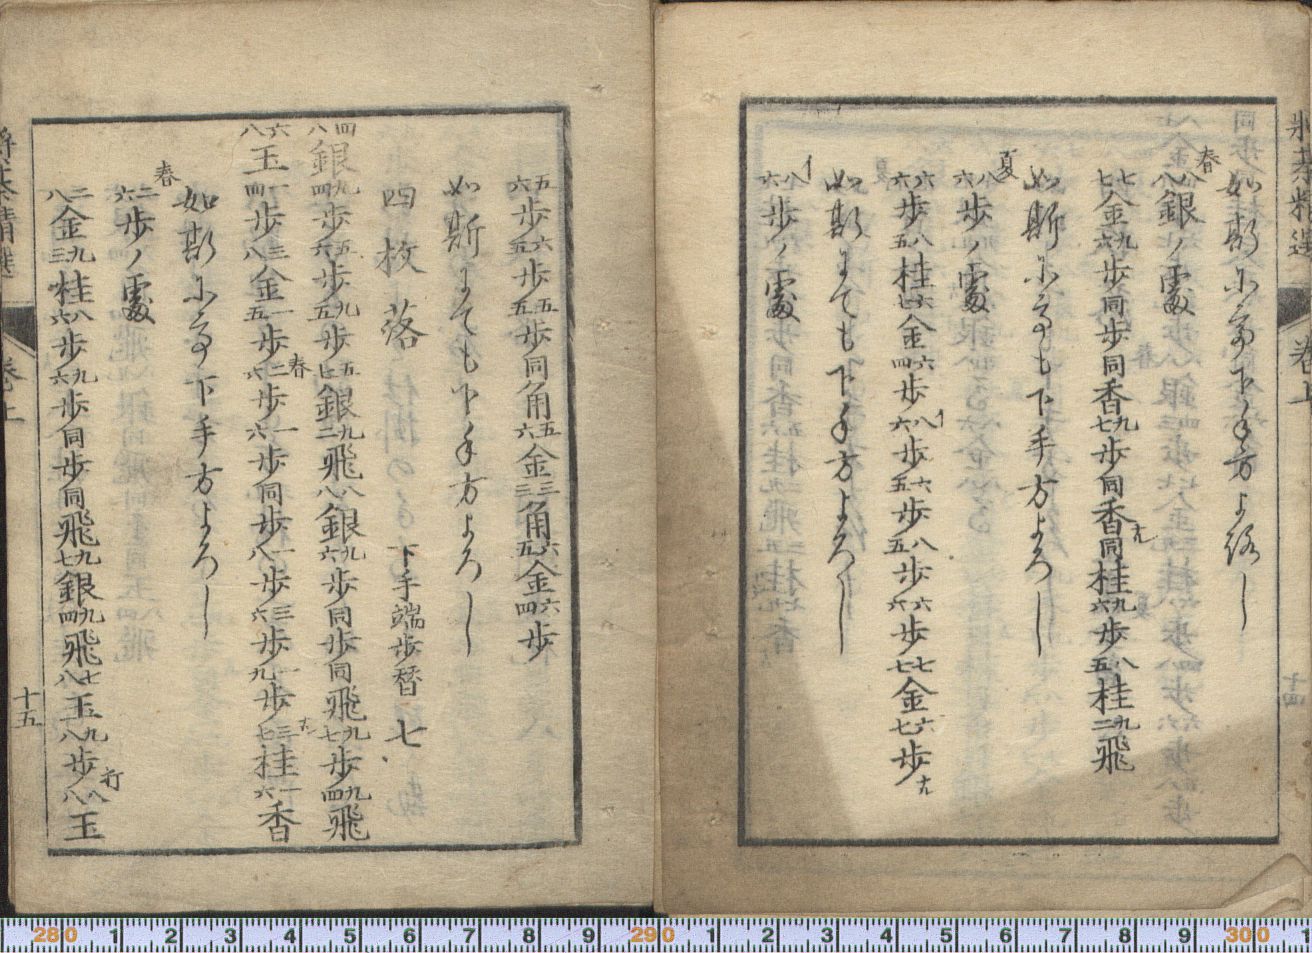 如斯にても下手方よろし
春
八八銀ノ處
七七金六九歩同歩同香七九歩同香同桂六九歩五八桂二九飛
如斯にても下手方よろし
夏
六八歩ノ處
六六歩五八桂七六金四六歩六八歩五六歩五八歩六六歩七七金七六歩
如斯にても下手方よろし
イ
六八歩ノ處
將棊精選
巻上
十四
六五歩五六歩五五歩同角六五金三三角五六金四六歩
如斯にても下手方よろし
四枚落
下手端歩替七
八四銀四九歩六五歩五九歩七五銀二九飛八八銀六九歩同歩同飛七九歩四九飛
八六玉四一歩八三金五一歩六二歩六一歩同歩八一歩六三歩九一歩七三桂六一香
春
如斯にて下手方よろし
春
六二歩ノ處
八二金三九桂六八歩六九歩同歩同飛七九銀四九飛八七玉八九歩八八玉
打
將棊精選
巻上
十五
280 1 2 3 4 5 6 7 8 9 290 1 2 3 4 5 6 7 8 9 300 1